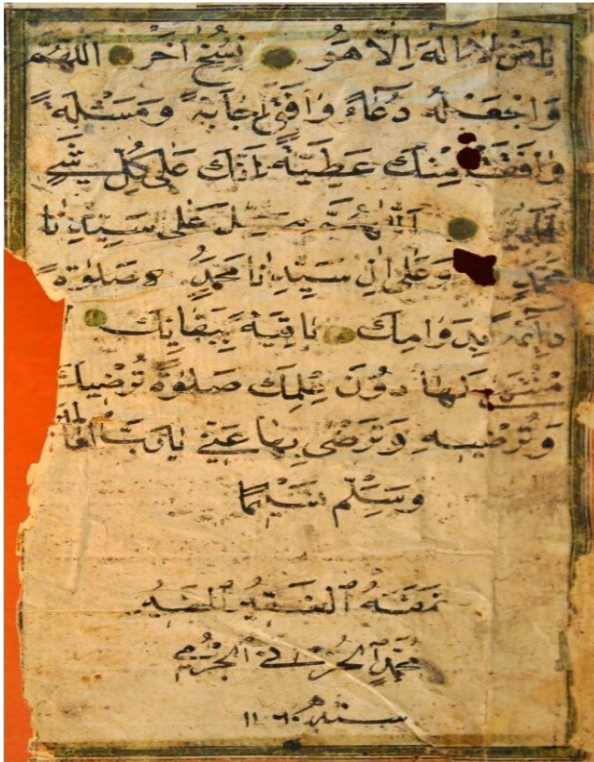 بلغن لا اله الا هو نسخ اخر اللهم
واجعله دعاء وافق اجابة ومسئلة
وافقت منك عطية انك على كل شيء
اللهم صل على سيدنا
محمد وعلى ال سيدنا محمد صلوة
دائمة بدوامك باقية ببقائك
منتهى لها دون علمك صلوة ترضيك
وترضيه وترضى بها عني يا رب
وسلم تسليما
نمقه الفقير
محمد
سنه ١١٦٠